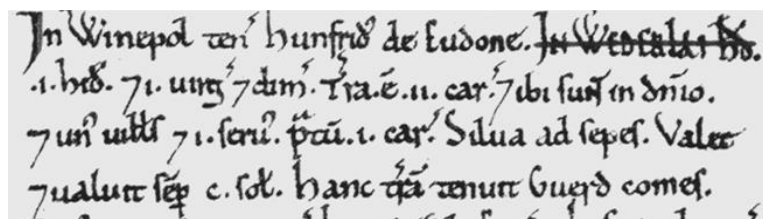 In Winepol ten᷒ hunfrid᷒ de Eudone. In WEDERLAI HD᷒.
.i. hid᷒. ⁊ i. uirg᷒ ⁊ dim᷒. T᷒ra. ē. ii. car᷒. ⁊ ibi sunt in dn̄io.
⁊ un᷒ uill̄s ⁊ i. seru᷒. p̄tū. i. car᷒. Silua ad sepes. Valet
⁊ ualuit sēp c. sol᷒. hanc t᷒rā tenuit Guerd comes.